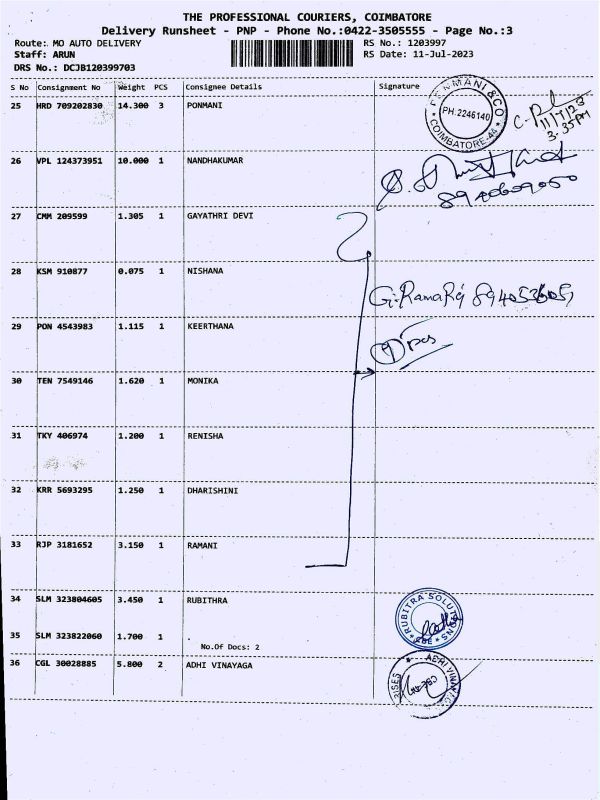 THE PROFESSIONAL COURIERS, COIMBATORE
Delivery Runsheet - PNP - Phone No.:0422-3505555 - Page No.:3
Route: MO AUTO DELIVERY RS No.: 1203997
Staff: ARUN RS Date: 11-Jul-2023
DRS No.: DCJB120399703
S No Consignment No Weight PCS Consignee Details Signature
25 HRD 709202830 14.300 3 PONMANI
PONMANI & CO
PH:2246140
COIMBATORE-44
11/7/23
3.35PM
26 VPL 124373951 10.000 1 NANDHAKUMAR
27 CMM 209599 1.305 1 GAYATHRI DEVI
28 KSM 910877 0.075 1 NISHANA
G. Ramaraj
29 PON 4543983 1.115 1 KEERTHANA
pcs
30 TEN 7549146 1.620 1 MONIKA
31 TKY 406974 1.200 1 RENISHA
32 KRR 5693295 1.250 1 DHARISHINI
33 RJP 3181652 3.150 1 RAMANI
34 SLM 323804605 3.450 1 RUBITHRA
RUBITRA SOLUTIONS
CBE
35 SLM 323822060 1.700 1 .
No.Of Docs: 2
36 CGL 30028885 5.800 2 ADHI VINAYAGA